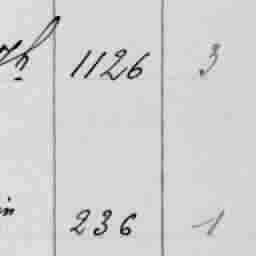 1126 3
in 236 1